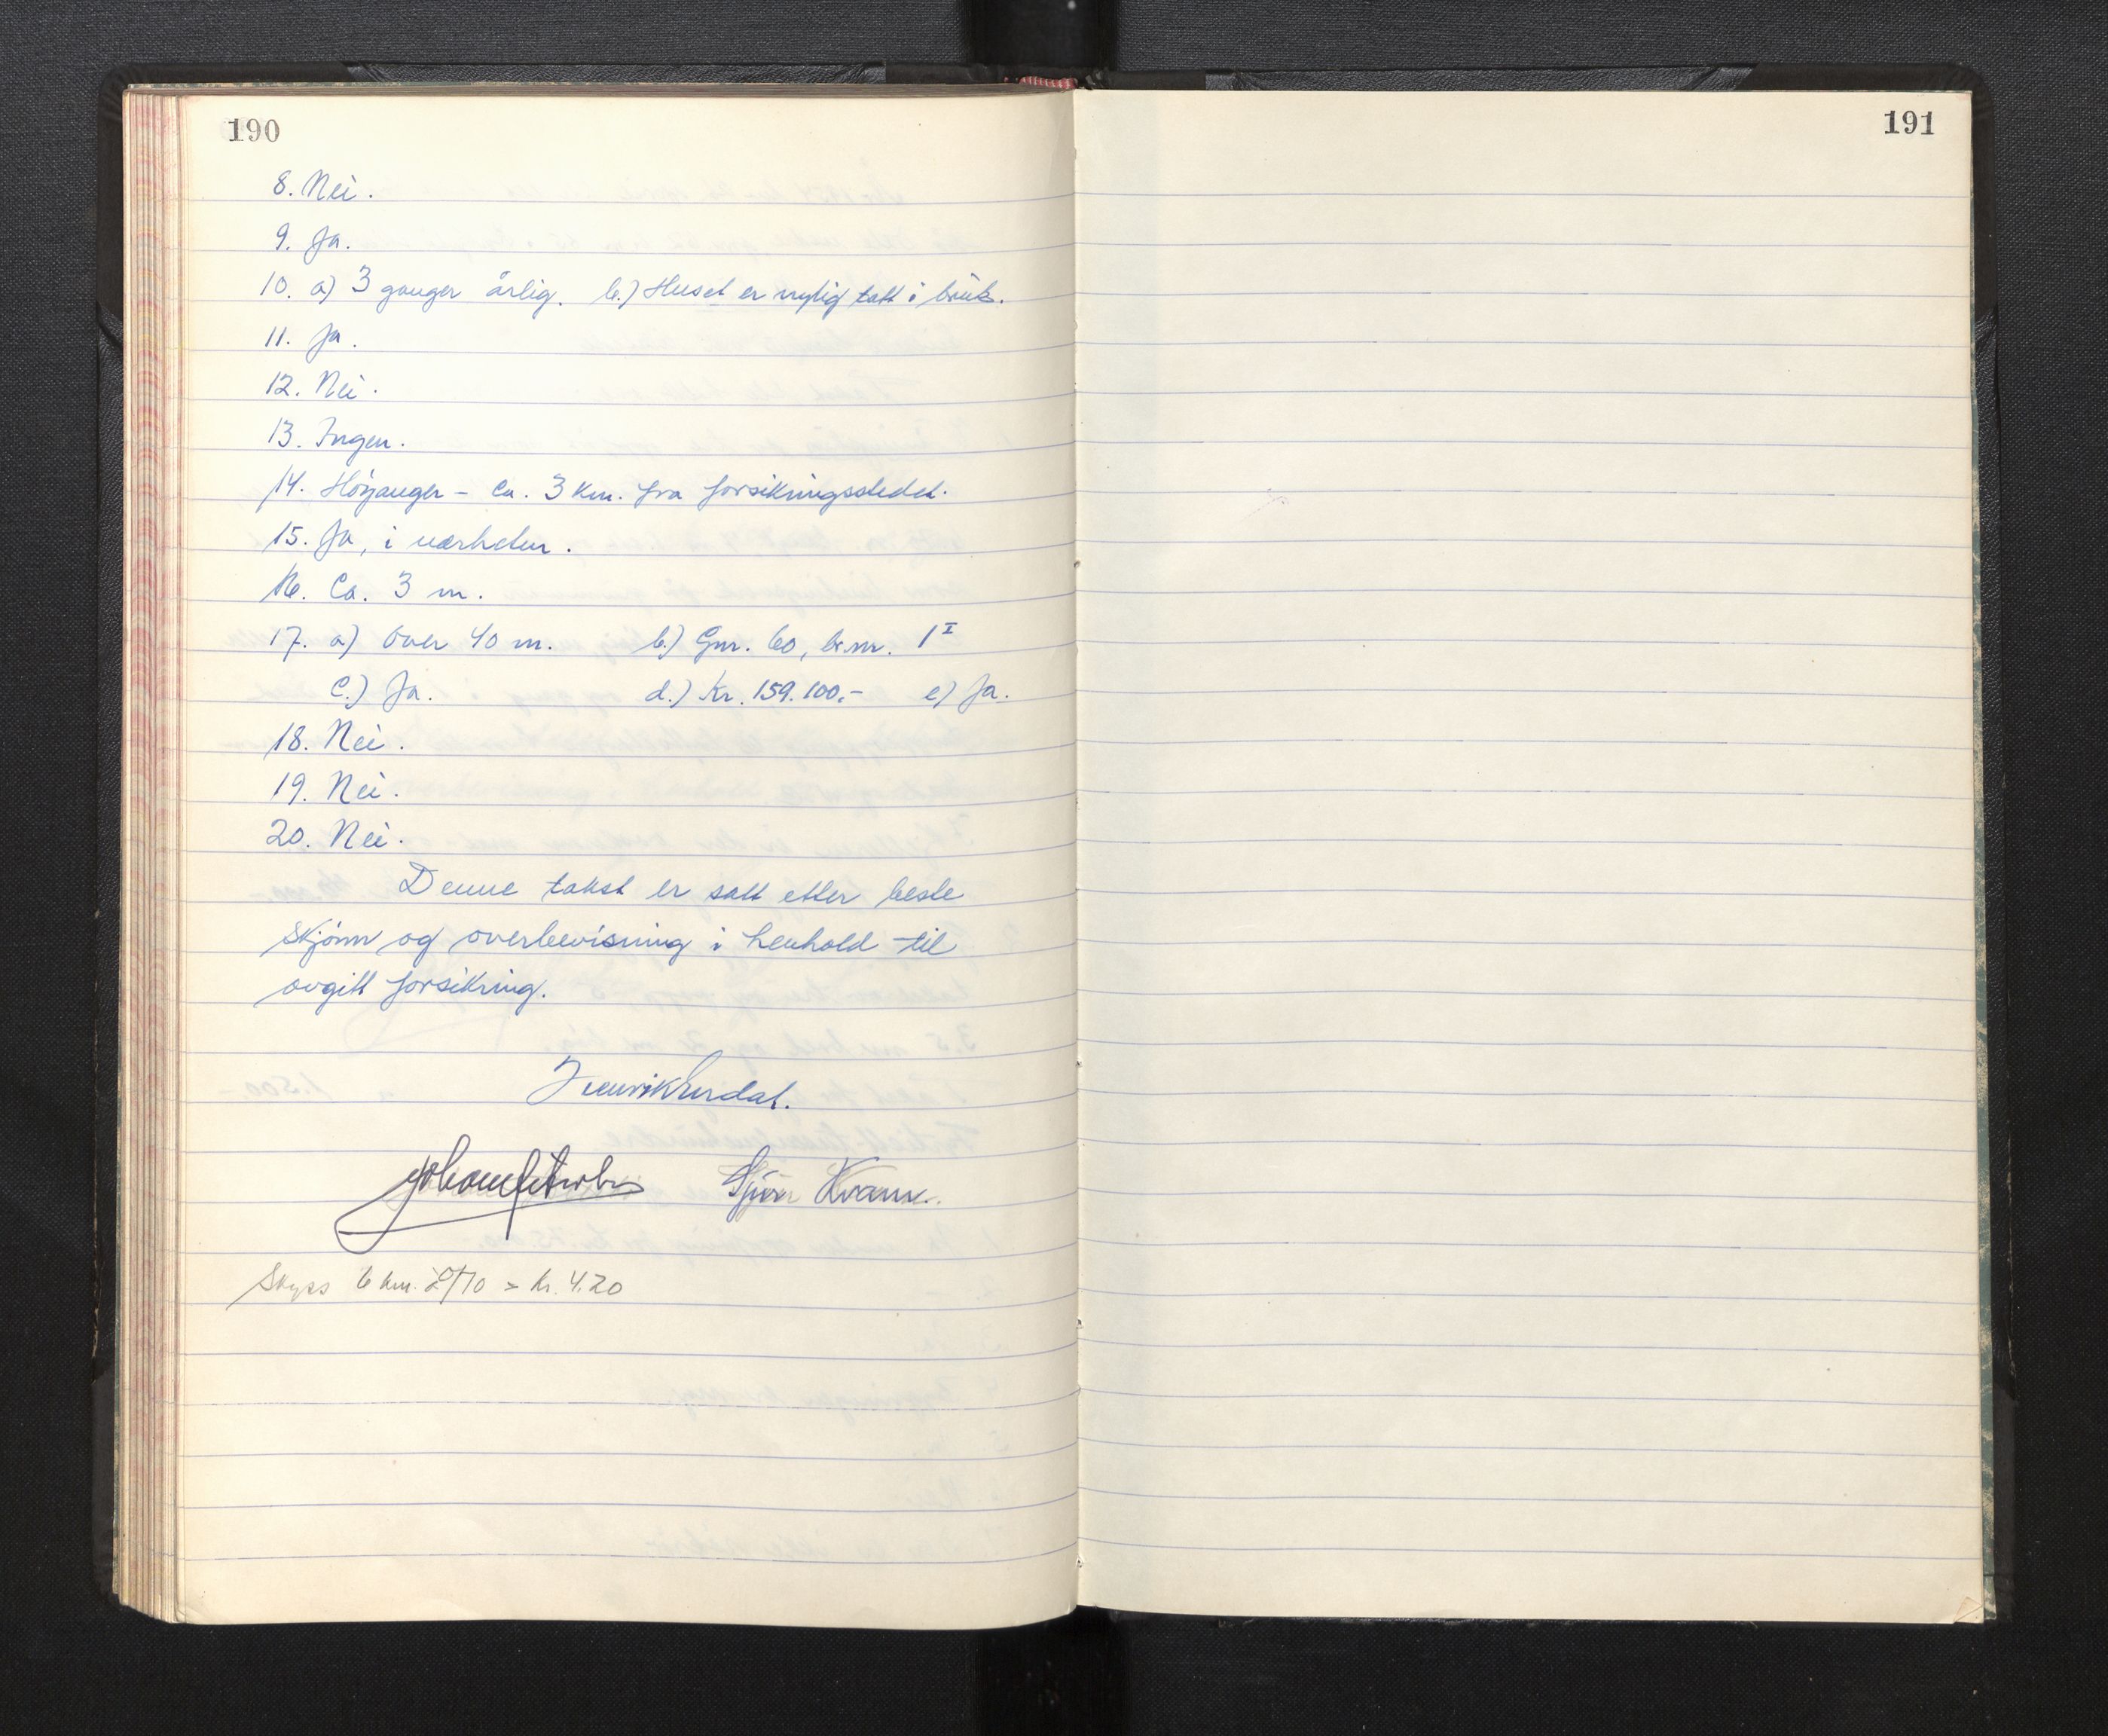 190
8. Nei.
9. Ja.
10. a) 3 ganger årlig. b.) Huset er nylig tatt i bruk.
11. Ja.
12. Nei.
13. Ingen.
14. Höyanger - Ca. 3 km. fra forsikringsstedet.
15. Ja, i nærheten.
16. Ca. 3 m.
17. a) Over 40 m. b.) Gnr. 60, br.nr. 1 I
c.) Ja. d.) Kr. 159.100.- e) Ja.
18. Nei.
19. Nei.
20. Nei.
Denne takst er satt etter beste
skjönn og overbevisning i henhold til
avgitt forsikring.
Henrik
Kvamme.
Skyss 6 km. à 0/70 = kr. 4.20
191